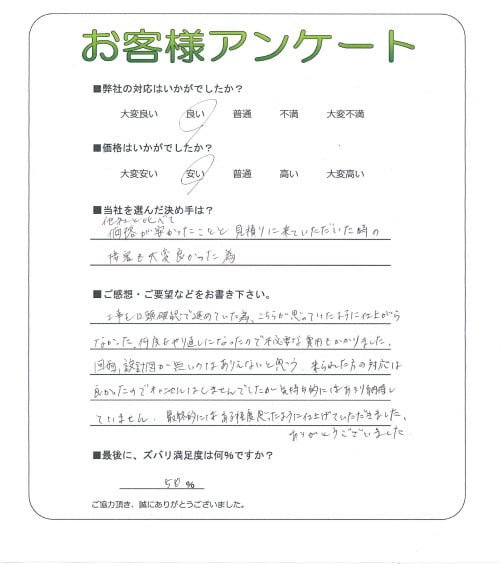 お客様アンケート
■弊社の対応はいかがでしたか？
大変良い 良い 普通 不満 大変不満
■価格はいかがでしたか？
大変安い 安い 普通 高い 大変高い
■当社を選んだ決め手は？
他社と比べて
価格が安かったことと見積りに来ていただいた時の
接客も大変良かった為
■ご感想・ご要望などをお書き下さい。
工事を口頭確認で進めていた為、こちらが思っていたように仕上がら
なかった。何度もやり直しになったので不必要な費用もかかりました。
図面、設計図が無いのはありえないと思う。来られた方の対応は
良かったのでキャンセルはしませんでしたが気持ち的にはあまり納得し
ていません。最終的にはある程度思ったように仕上げていただきました。
ありがとうございました。
■最後に、ズバリ満足度は何％ですか？
50 %
ご協力頂き、誠にありがとうございました。